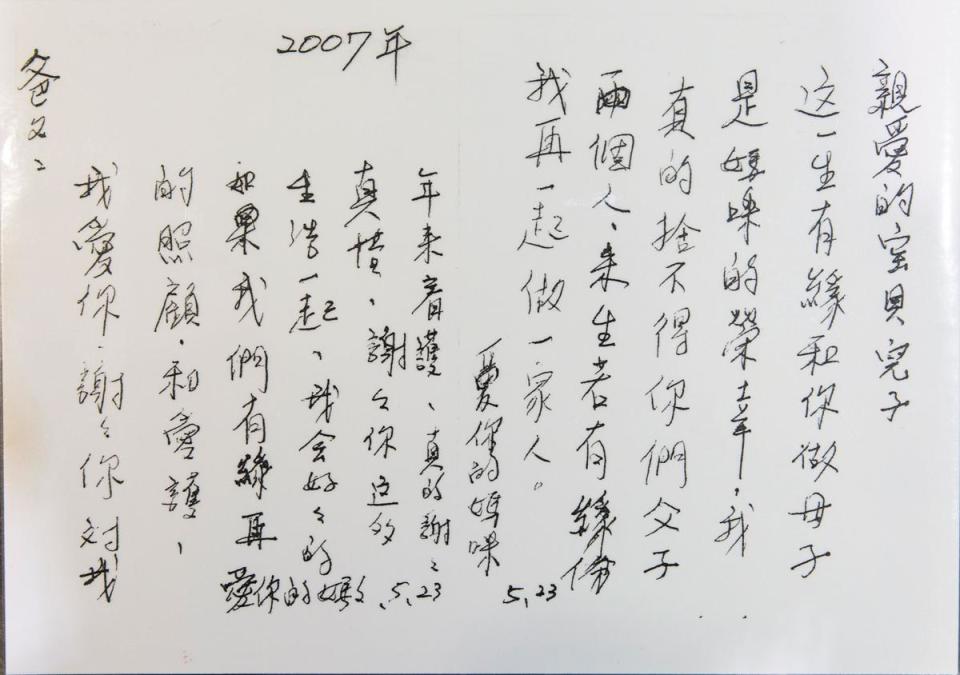 2007年
親愛的宝貝兒子
这一生有緣和你做母子
是媽咪的榮幸,我
真的捨不得你們父子
兩個人、来生若有緣
我再一起做一家人。
愛你的媽咪
5,23
爸爸:
我愛你.謝々你対我
的照顧,和愛護、
如果我們有緣再
生活一起、我会好々的
真惜、謝々你这多
年来看護、真的謝々
愛你的媽媽 5,23